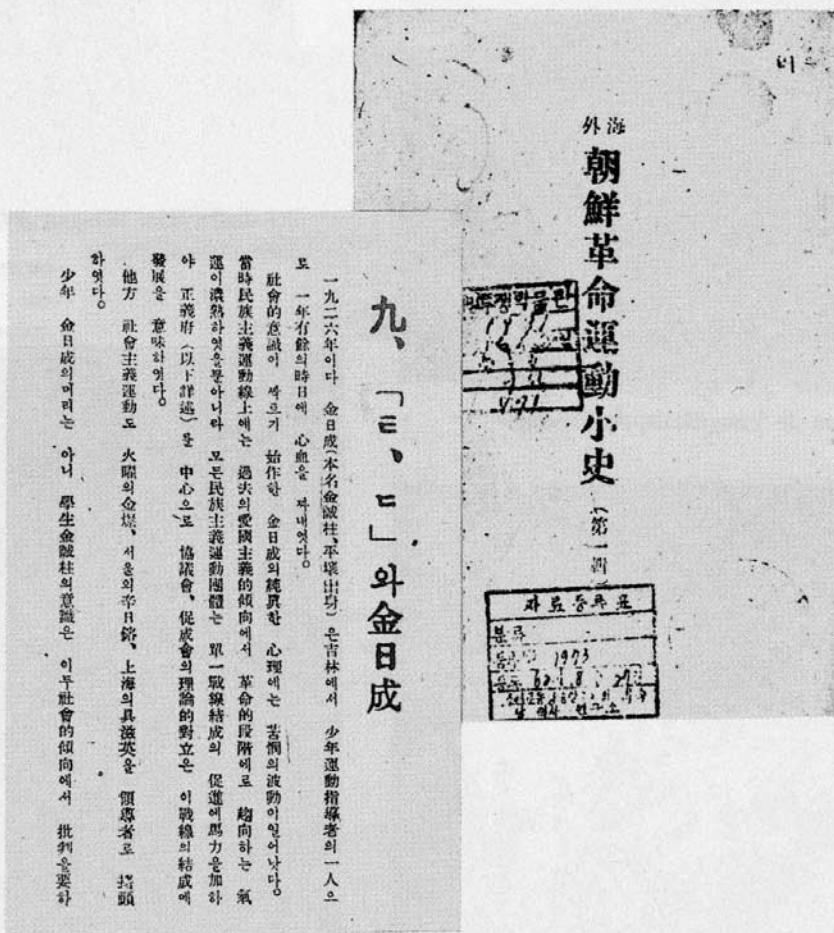 海外
朝鮮革命運動小史
(第一輯)
자료등록표
분류
1973
九、「ㅌ、ㄷ」와金日成
一九二六年이다 金日成(本名金誠柱、平壤出身)은吉林에서 少年運動指導者의一人으
로 一年有餘의時日에 心血을 짜내엿다。
社會的意識이 싹으기 始作한 金日成의純眞한 心理에는 苦悶의波動이일어낫다。
當時民族主義運動線上에는 過去의愛國主義的傾向에서 革命的段階에로 趨向하는 氣
運이濃熟하엿을뿐아니라 모든民族主義運動團體는 單一戰線結成의 促進에馬力을加하
야 正義府(以下詳述)를 中心으로 協議會、促成會의理論的對立은 이戰線의結成에
發展을 意味하엿다。
他方 社會主義運動도 火曜의金燦、서울의辛日鎔、上海의具滋英을 領導者로 擡頭
하엿다。
少年 金日成의머리는 아니 學生金誠柱의意識은 이두社會的傾向에서 批判을要하